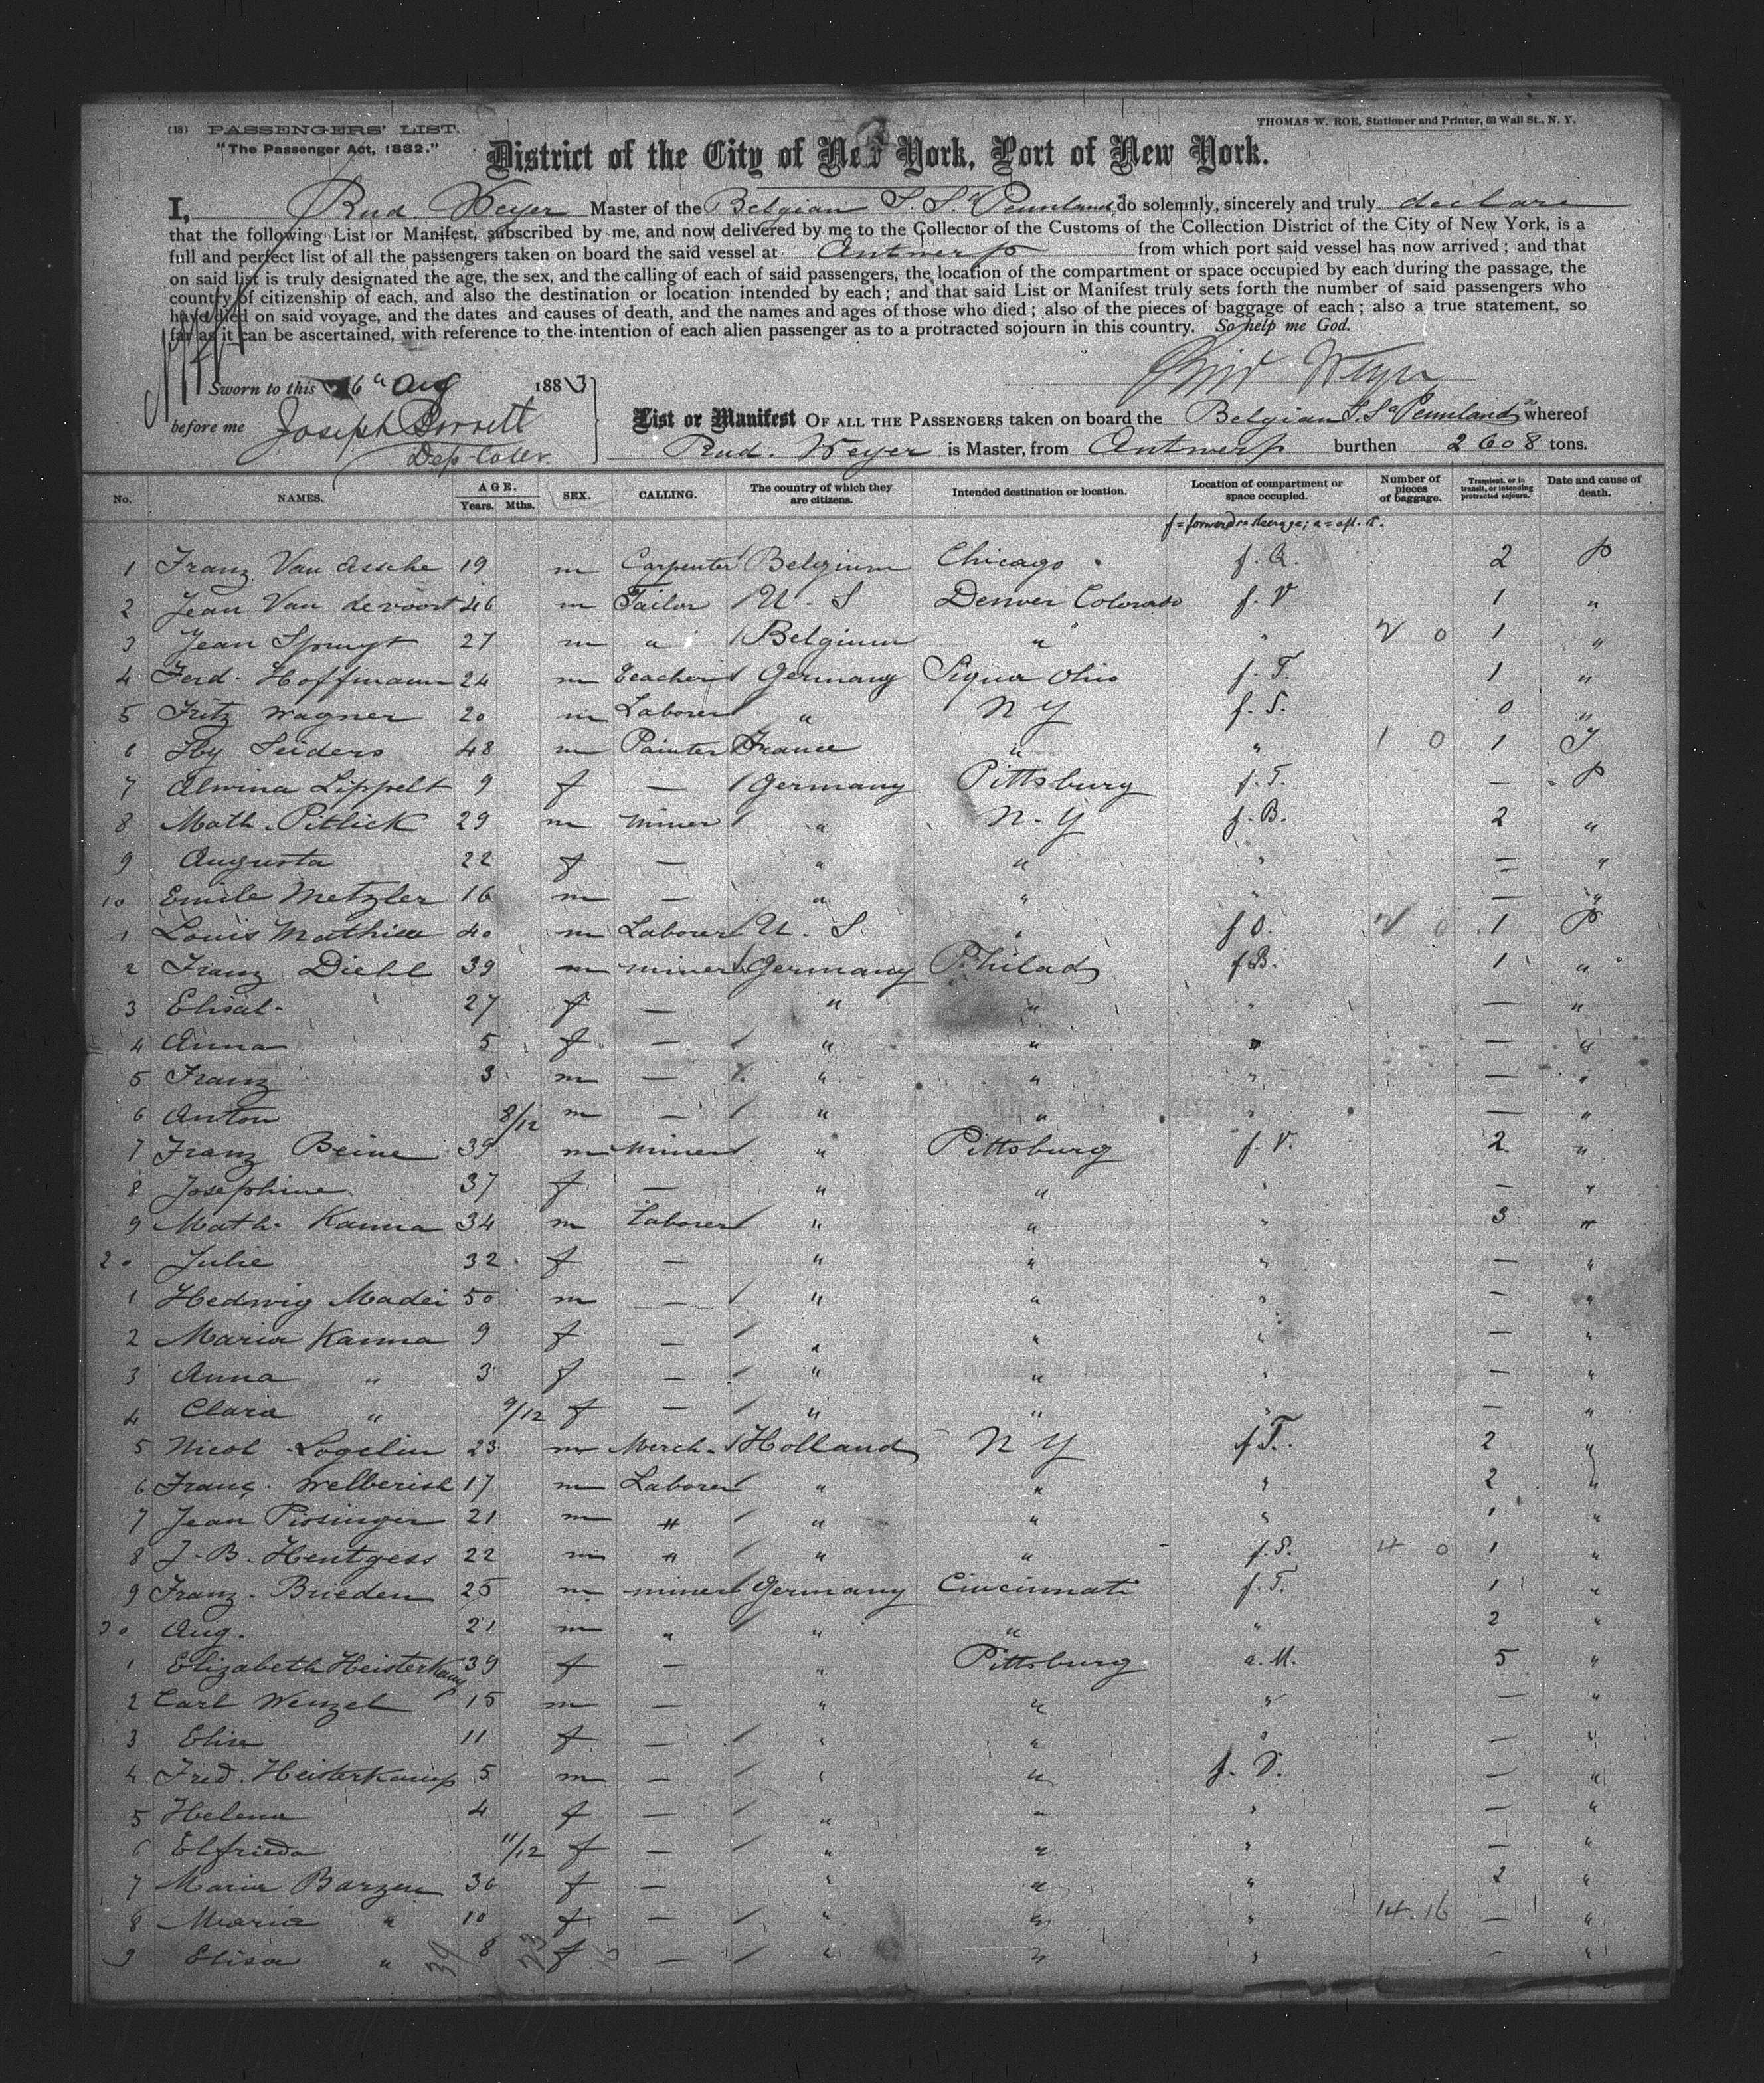 (18) PASSENGERS' LIST.
"The Passenger Act, 1882."
THOMAS W. ROE, Stationer and Printer, 83 Wall St., N. Y.
District of the City of New York, Port of New York.
I, Rud. Weyer Master of the Belgian S. S. "Pennland" do solemnly, sincerely and truly declare
that the following List or Manifest, subscribed by me, and now delivered by me to the Collector of the Customs of the Collection District of the City of New York, is a
full and perfect list of all the passengers taken on board the said vessel at Antwerp from which port said vessel has now arrived; and that
on said list is truly designated the age, the sex, and the calling of each of said passengers, the location of the compartment or space occupied by each during the passage, the
country of citizenship of each, and also the destination or location intended by each; and that said List or Manifest truly sets forth the number of said passengers who
have died on said voyage, and the dates and causes of death, and the names and ages of those who died; also of the pieces of baggage of each; also a true statement, so
far as it can be ascertained, with reference to the intention of each alien passenger as to a protracted sojourn in this country. So help me God.
Rud Weyer
Sworn to this 6" Aug 1883
before me Joseph
Dep. Coller.
List or Manifest OF ALL THE PASSENGERS taken on board the Belgian S. S. "Pennland" whereof
Rud. Weyer is Master, from Antwerp burthen 2608 tons.
No. NAMES. AGE. Years. Mths. SEX. CALLING. The country of which they are citizens. Intended destination or location. Location of compartment or space occupied. Number of pieces of baggage. Transient, or in transit, or intending protracted sojourn. Date and cause of death.
f = forward steerage; a = aft. "
1 Franz Van Assche 19 m Carpenter Belgium Chicago f. Q. 2 P
2 Jean Van devoort 46 m Tailor U. S Denver Colorado f. V 1 "
3 Jean Spruyt 27 m " Belgium " " 2 0 1 "
4 Ferd. Hoffmann 24 m Teacher Germany Piqua Ohio f. T. 1 "
5 Fritz Wagner 20 m Laborer " N Y f. S. 0 "
6 Hy Seiders 48 m Painter France " " 1 0 1 T
7 Alwina Lippelt 9 f — Germany Pittsburg f. T. — P
8 Math. Pitlick 29 m miner " N. Y f. B. 2 "
9 Augusta 22 f — " " " — "
10 Emile Metzler 16 m — " " " — "
1 Louis Mathieu 40 m Laborer U. S. " f O. 0 1 P
2 Franz Diehl 39 m miner Germany Philad f B. 1 "
3 Elisab. 27 f — " " " — "
4 Anna 5 f — " " " — "
5 Franz 3 m — " " " — "
6 Anton 8/12 m — " " " — "
7 Franz Beine 39 m miner " Pittsburg f. V. 2 "
8 Josephine 37 f — " " " — "
9 Math. Kanna 34 m Laborer " " " 3 "
20 Julie 32 f — " " " — "
1 Hedwig Madei 50 m — " " " — "
2 Maria Kanna 9 f — " " " — "
3 Anna " 3 f — " " " — "
4 Clara " 9/12 f — " " " — "
5 Nicol Logelin 23 m Merch. Holland N Y f T. 2 "
6 Franç. Welberish 17 m Laborer " " " 2 "
7 Jean Pissinger 21 m " " " " 1 "
8 J. B. Hentgess 22 m " " " f. S. 4 0 1 "
9 Franz. Brieden 25 m miner Germany Cincinnati f. T. 1 "
30 Aug. 21 m " " " " 2 "
1 Elizabeth Heisterkamp 39 f — " Pittsburg a. M. 5 "
2 Carl Wenzel 15 m — " " " — "
3 Elise 11 f — " " " — "
4 Fred. Heisterkamp 5 m — " " f. V. — "
5 Helena 4 f — " " " — "
6 Elfrieda 11/12 f — " " " — "
7 Maria Barzen 36 f — " " " 2 "
8 Maria " 10 f — " " " 14. 16 — "
9 Elisa " 8 f — " " " — "
39 23 16